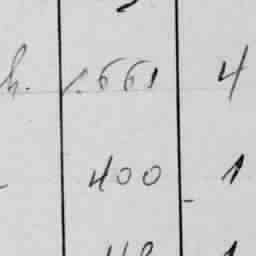 h. 1.661 4
400 1